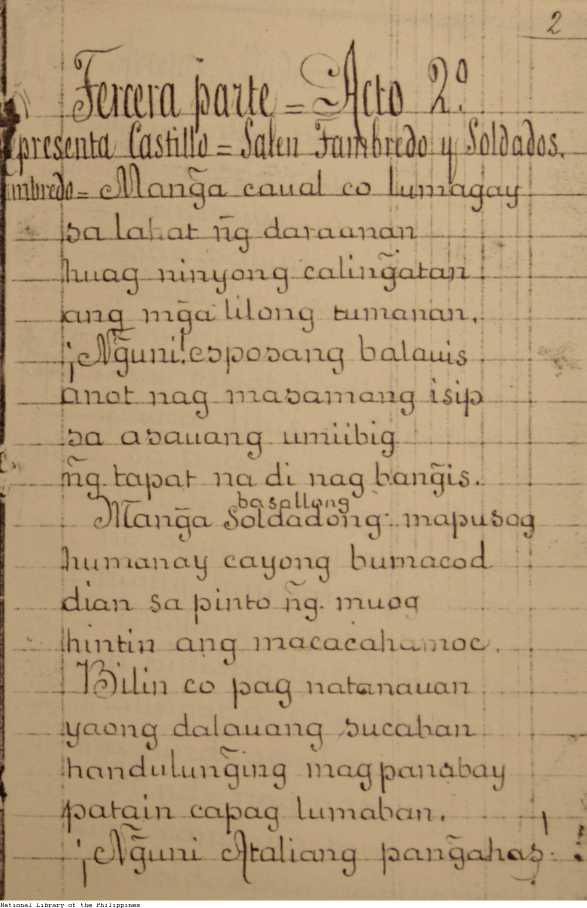 2
Tercera parte = Acto 2º.
presenta Castillo = Salen Fambredo y Soldados.
mbredo = Mang̃a caual co lumagay
sa lahat ñg daraanan
huag ninyong caling̃atan
ang mg̃a lilong tumanan.
¡Ng̃uni! esposang balauis
anot nag masamang isip
sa asauang umiibig
ñg tapat na di nag bang̃is.
basallong
Mang̃a Soldadong mapusog
humanay cayong bumacod
dian sa pinto ñg muog
hintin ang macacahamoc.
Bilin co pag natanauan
yaong dalauang sucaban
handulung̃ing magpanabay
patain capag lumaban.
¡Ng̃uni Ataliang pang̃ahas
National Library of the Philippines